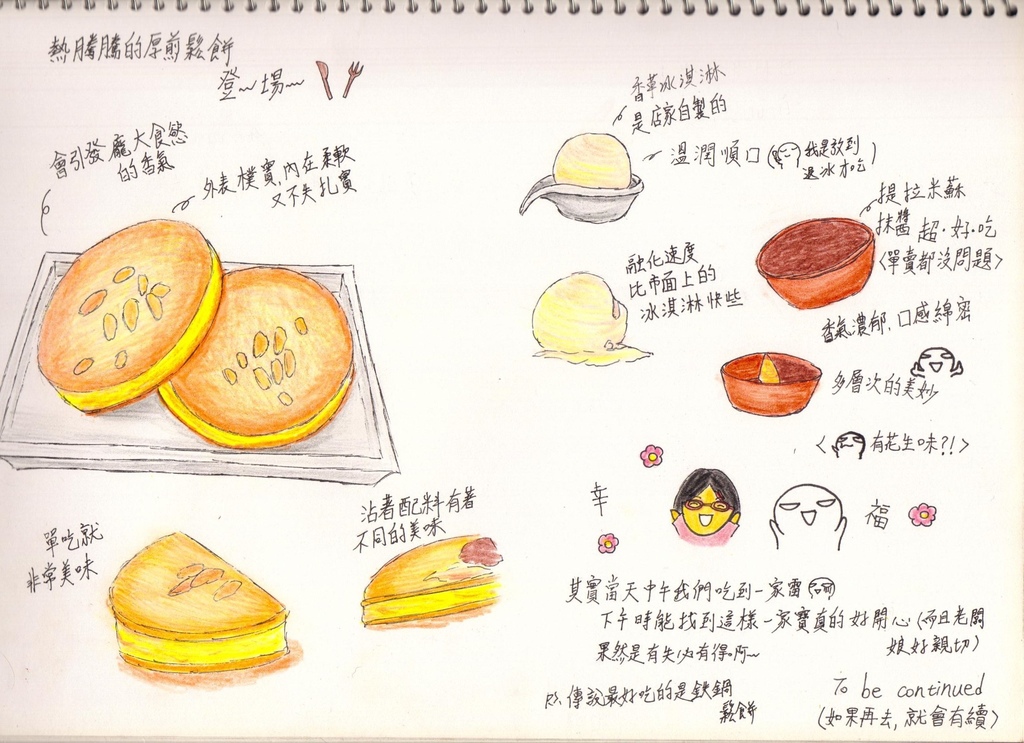 熱騰騰的厚煎鬆餅
登~場~
會引發龐大食慾
的香氣
外表樸實,內在柔軟
又不失扎實
香草冰淇淋
是店家自製的
溫潤順口(我是放到
退冰才吃)
提拉米蘇
抹醬 超·好·吃
<單賣都沒問題>
融化速度
比市面上的
冰淇淋快些
香氣濃郁,口感綿密
多層次的美妙
<有花生味?!>
單吃就
非常美味
沾著配料有著
不同的美味
幸 福
其實當天中午我們吃到一家雷
下午時能找到這樣一家寶真的好開心(而且老闆
娘好親切)
果然是有失必有得啊~
PS.傳說最好吃的是鐵鍋
鬆餅
To be continued
(如果再去,就會有續)